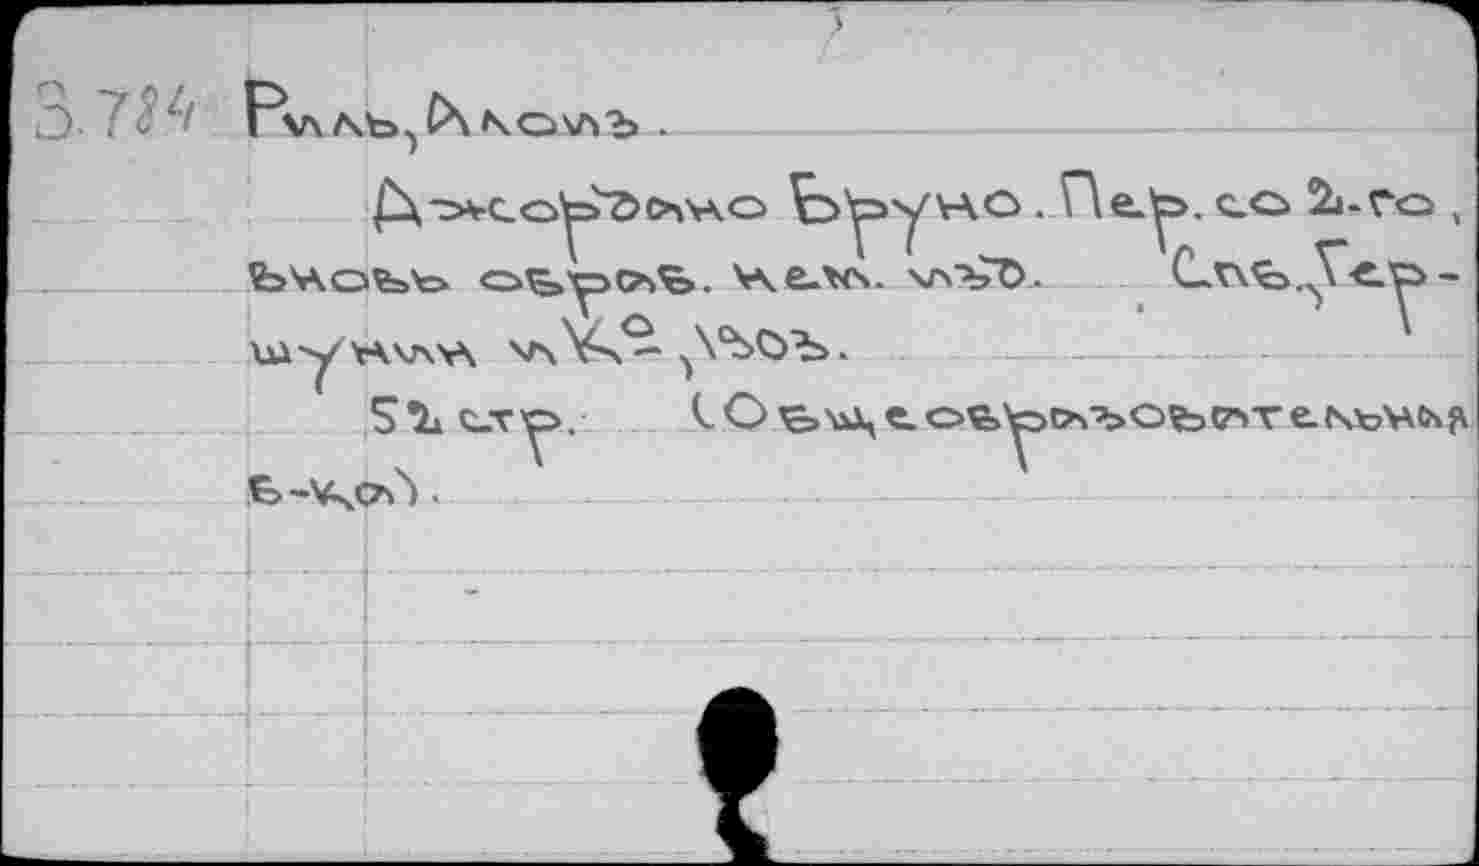 3.784 Рилль, Алоизъ.
Джордано Бруно. Пер. со 2-го,
вновь обраб. нем. изд. Спб., Гер-
шунин и К°, 1903.
52 стр. (Общеобразовательная
б-ка).